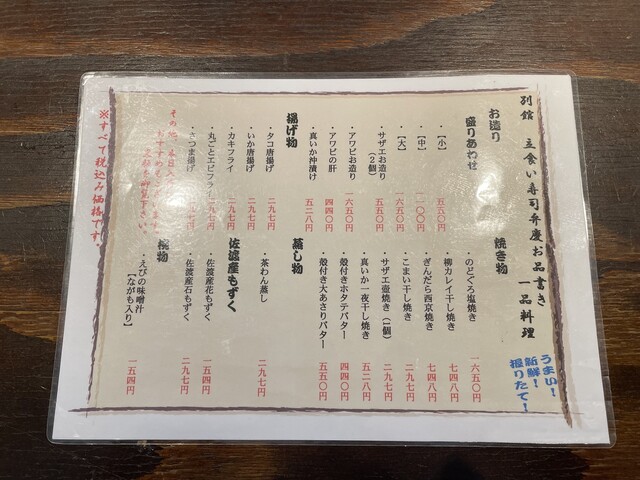 別館 立食い寿司弁慶お品書き
一品料理
うまい!
新鮮!
握りたて!
お造り
盛りあわせ
・【小】 五五〇円
・【中】 一一〇〇円
・【大】 一六五〇円
・サザエお造り
(2個) 五五〇円
・アワビお造り 一六五〇円
・アワビの肝 四四〇円
・真いか沖漬け 五二八円
揚げ物
・タコ唐揚げ 二九七円
・いか唐揚げ 二九七円
・カキフライ 二九七円
・丸ごとエビフライ
・さつま揚げ
焼き物
・のどぐろ塩焼き 一六五〇円
・柳カレイ干し焼き 七四八円
・ぎんだら西京焼き 七四八円
・こまい干し焼き 二九七円
・サザエ壺焼き(1個) 二九七円
・真いか一夜干し焼き 五二八円
・殻付きホタテバター 四四〇円
・殻付き大あさりバター 五五〇円
蒸し物
・茶わん蒸し 二九七円
佐渡産もずく
・佐渡産花もずく 一五四円
・佐渡産石もずく 二九七円
椀物
・えびの味噌汁
【ながも入り】 一五四円
その他、本日入
おすすめもございます。
※すべて税込み価格です。